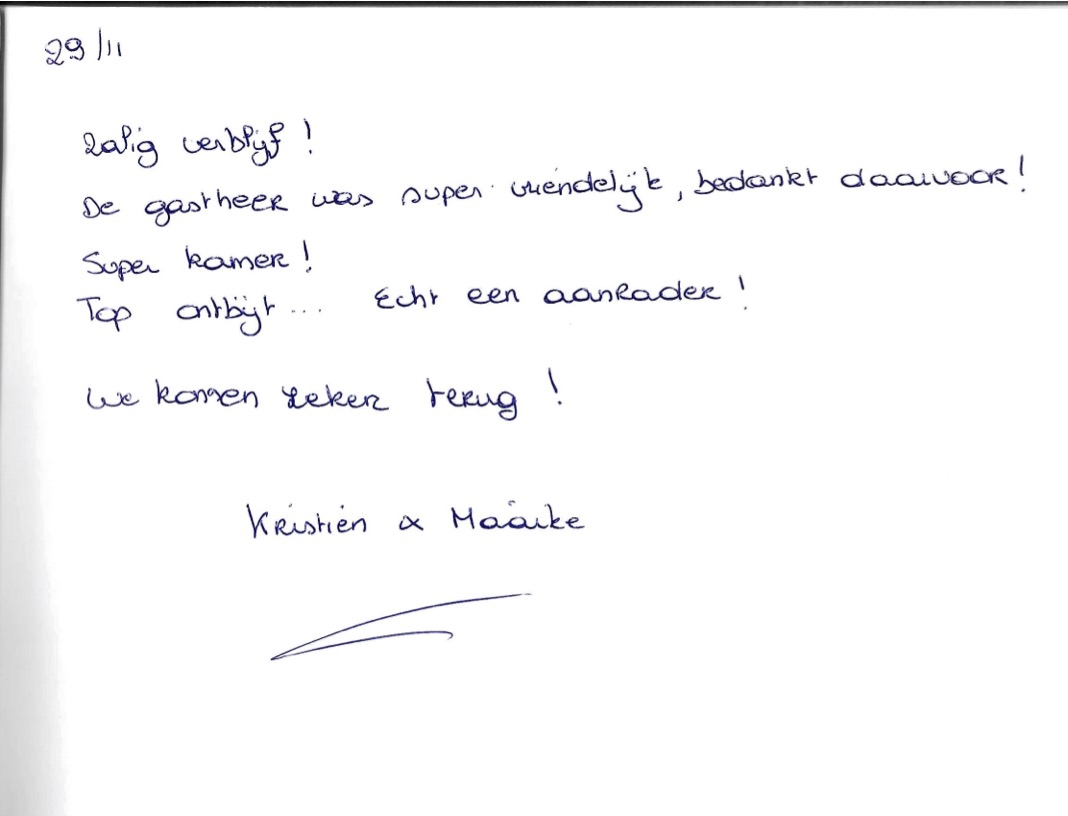 29/11
Zalig verblijf!
De gastheer was super vriendelijk, bedankt daarvoor!
Super kamer!
Top ontbijt... Echt een aanrader!
We komen zeker terug!
Kristien & Maaike